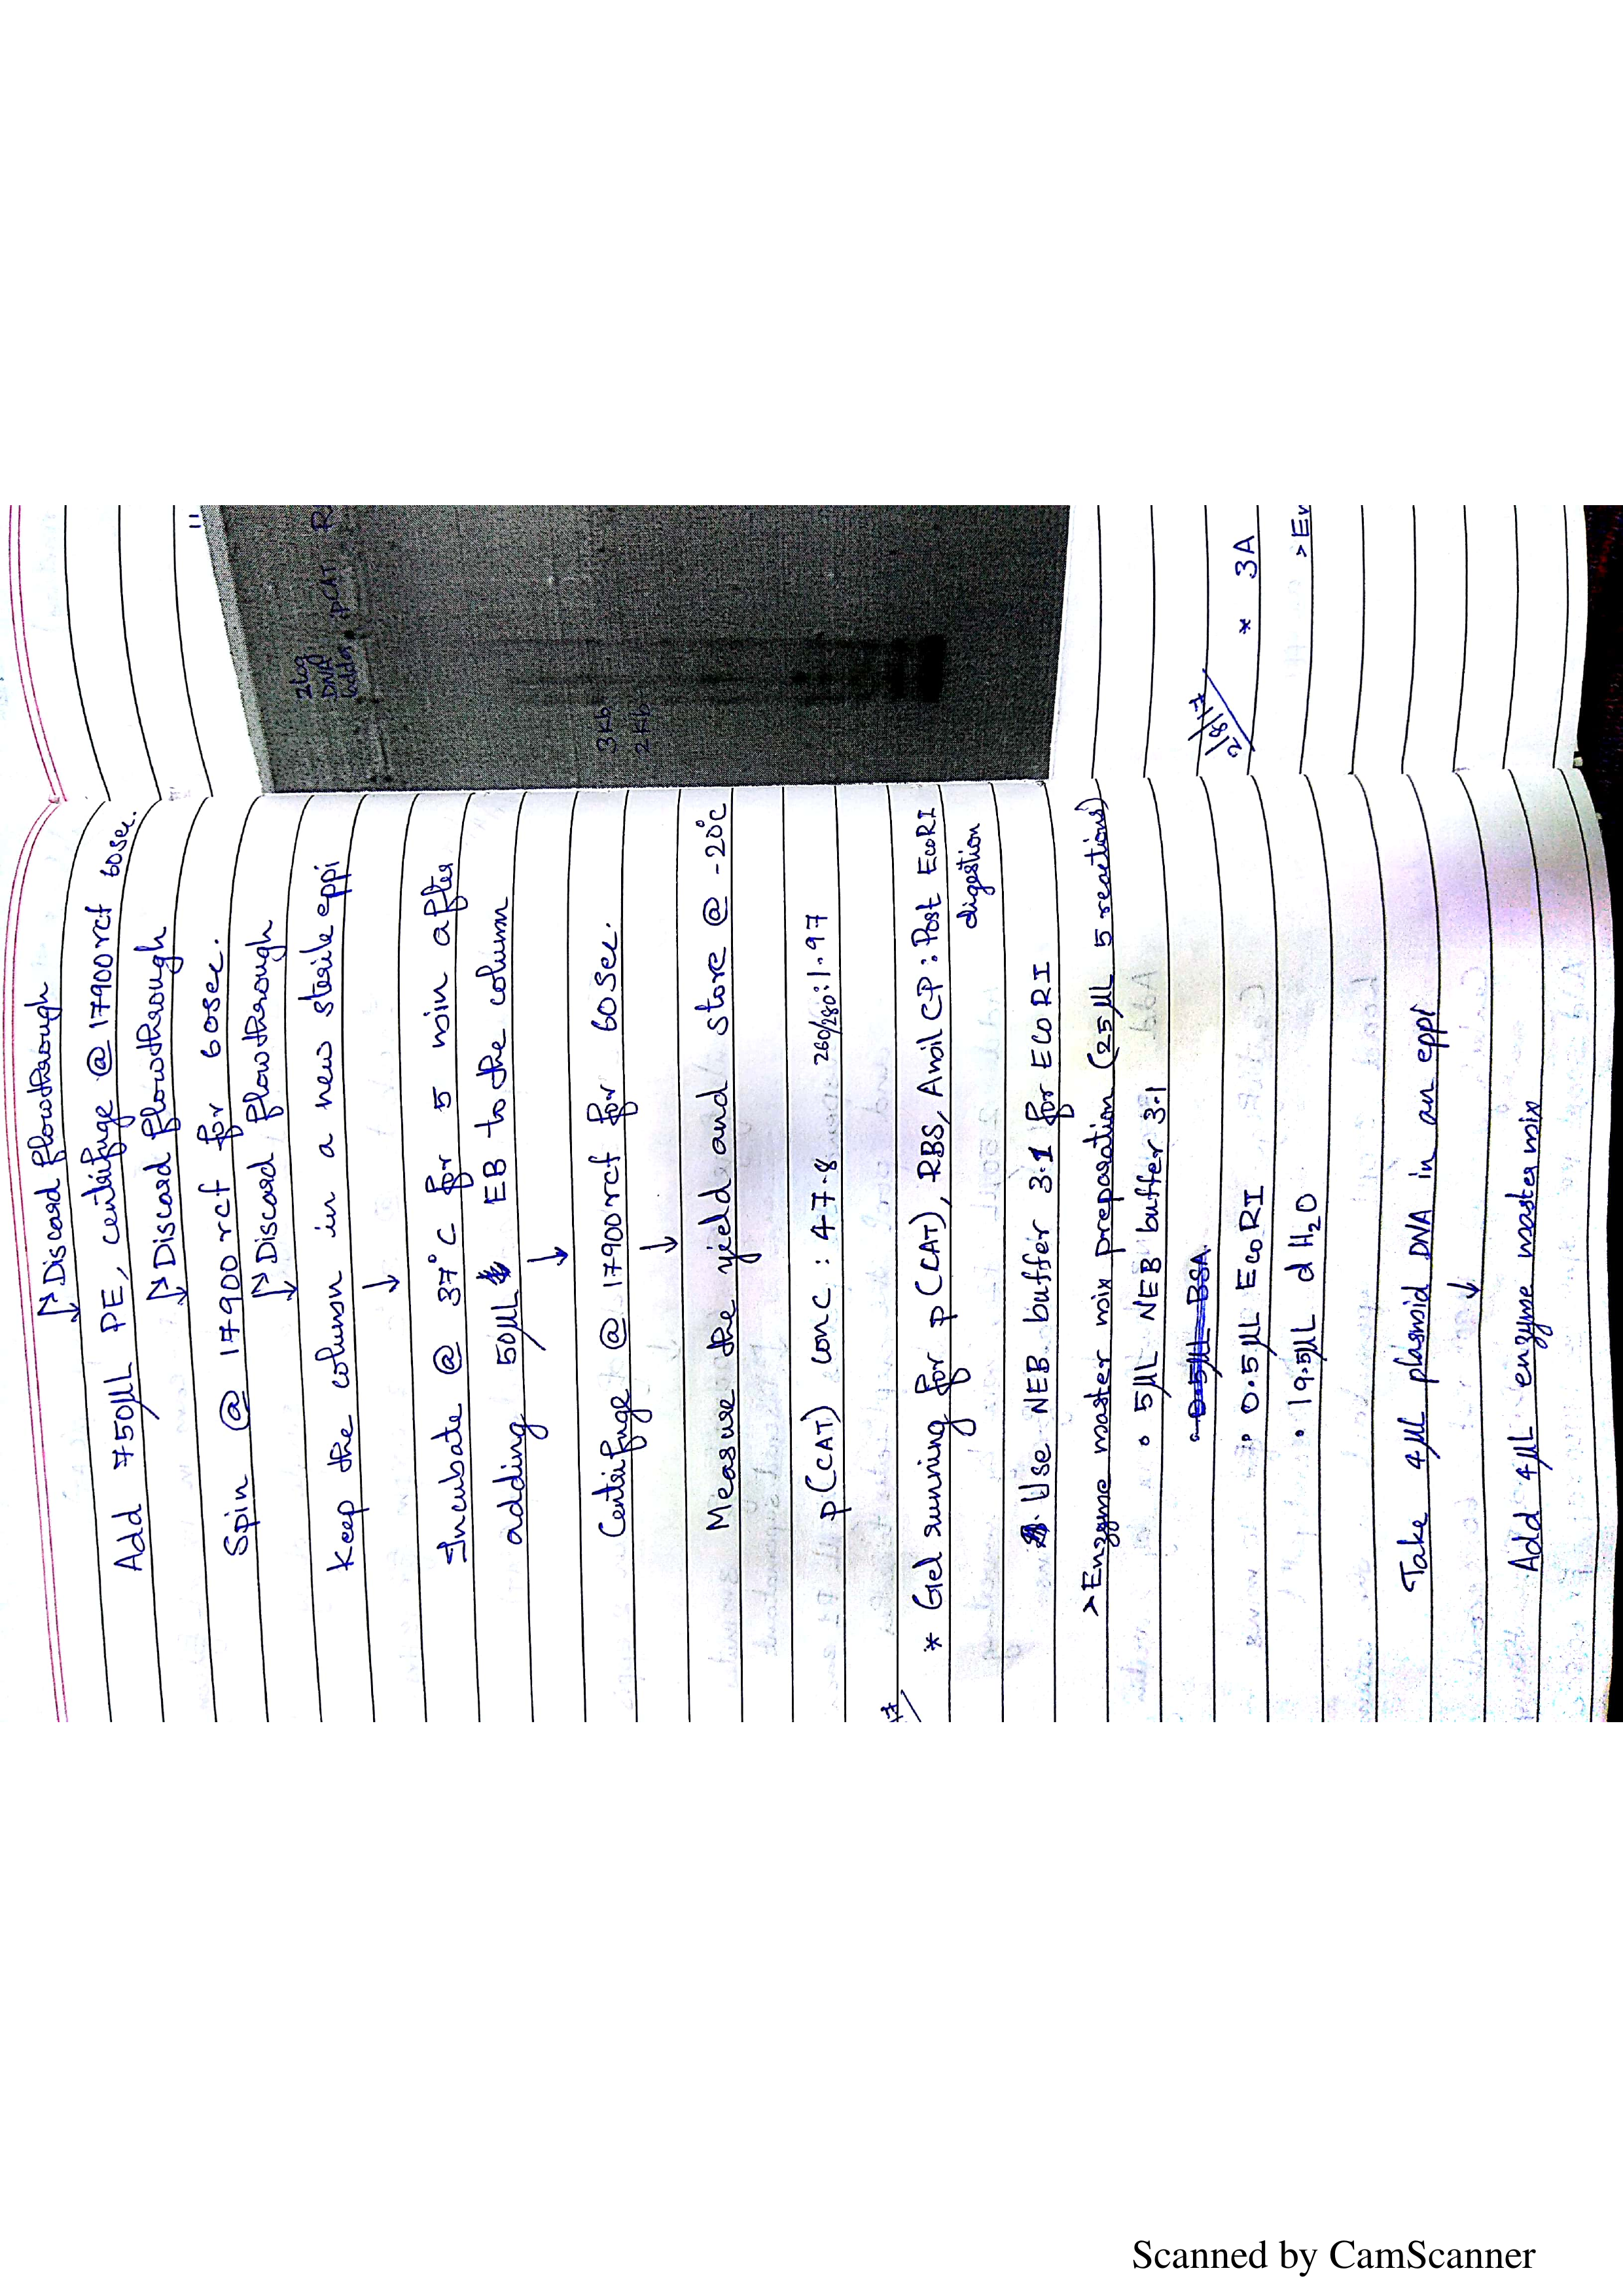 Discard flowthorough
Add 750μL PE, centrifuge @ 17900rcf 60sec.
Discard flowthorough
Spin @ 17900 rcf for 60sec.
Discard flowthorough
Keep the column in a new sterile eppi
↓
Incubate @ 37°C for 5 min after
adding 50μL EB to the column
↓
Centrifuge @ 17900rcf for 60sec.
↓
Measure the yield and store @ -20°C
p(CAT) conc : 47.8 260/280: 1.97
* Gel running for p(CAT), RBS, Amil CP: Post EcoRI
digestion
Use NEB buffer 3.1 for ECORI
> Enzyme master mix preparation (25μL 5 reactions)
• 5μL NEB buffer 3.1
• 0.5μL BSA
• 0.5μL EcoRI
• 19.5μL dH₂O
Take 4μL plasmid DNA in an eppi
↓
Add 4μL enzyme mastermix
"
2log
DNA
ladder
pCAT
3Kb
2Kb
2/8/17
* 3A
Scanned by CamScanner